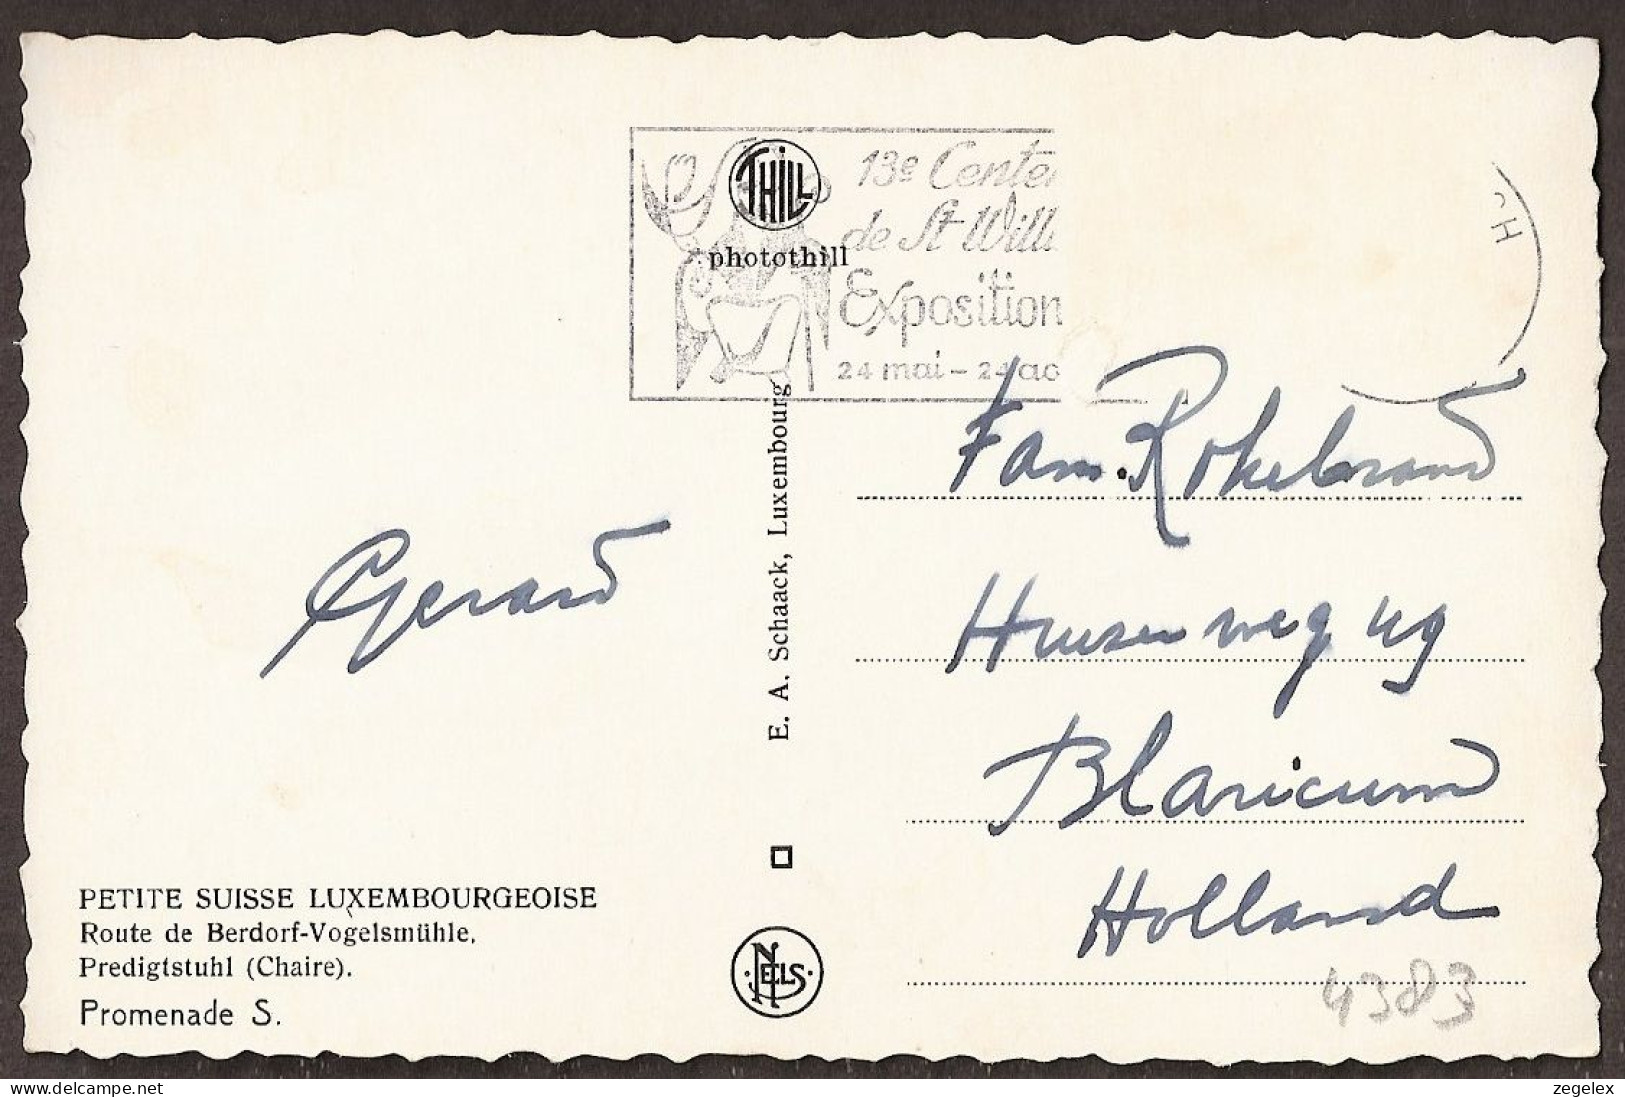 THILL
photothill
13e Center
de St Willi
Exposition
24 mai - 24 ao
H
Fam. Rokebrand
Huizerweg 49
Blaricum
Holland
4383
Gerard
E. A. Schaack, Luxembourg
PETITE SUISSE LUXEMBOURGEOISE
Route de Berdorf-Vogelsmühle.
Predigtstuhl (Chaire).
Promenade S.
NELS
delcampe.net
zegelex